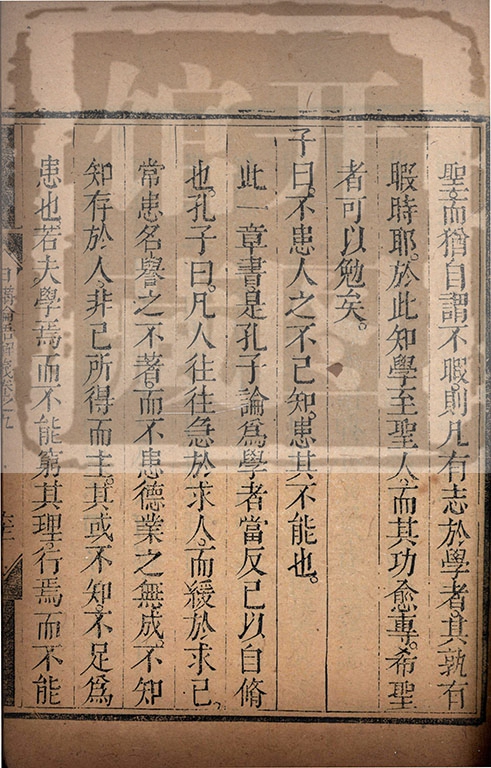 聖而猶自謂不暇則凡有志於學者其孰有
暇時耶於此知學至聖人而其功愈專希聖
者可以勉矣
子曰不患人之不己知患其不能也
此一章書是孔子論爲學者當反己以自脩
也孔子曰凡人往往急於求人而緩於求己
常患名譽之不著而不患德業之無成不知
知存於人非己所得而主其或不知不足爲
患也若夫學焉而不能窮其理行焉而不能
日講論語解義卷之九